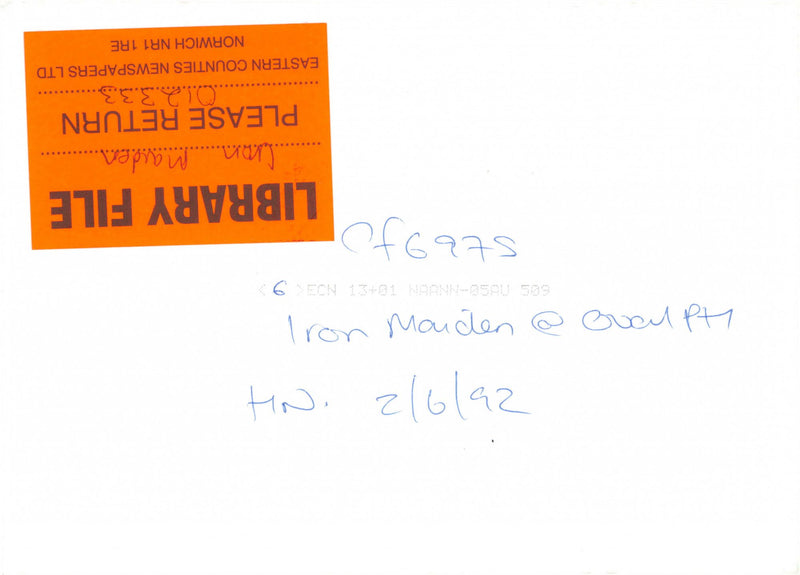 LIBRARY FILE
Iron Maiden
PLEASE RETURN
012333
EASTERN COUNTIES NEWSPAPERS LTD
NORWICH NR1 1RE
Cf6975
< 6 >ECN 13+01 NAANN-05AU 509
Iron Maiden @ Oval PH
HN. 2/6/92